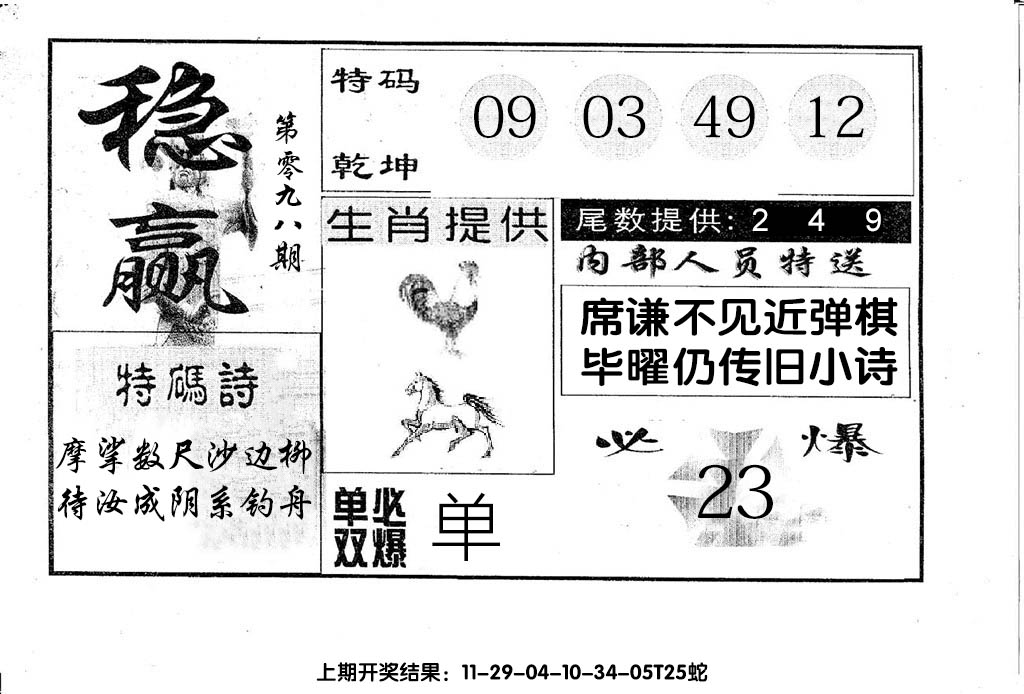 稳赢
第零九八期
特码
乾坤
09 03 49 12
生肖提供
尾数提供: 2 4 9
内部人员特送
席谦不见近弹棋
毕曜仍传旧小诗
特碼詩
摩挲数尺沙边柳
待汝成阴系钓舟
必爆
23
单双必爆
单
上期开奖结果：11-29-04-10-34-05T25蛇